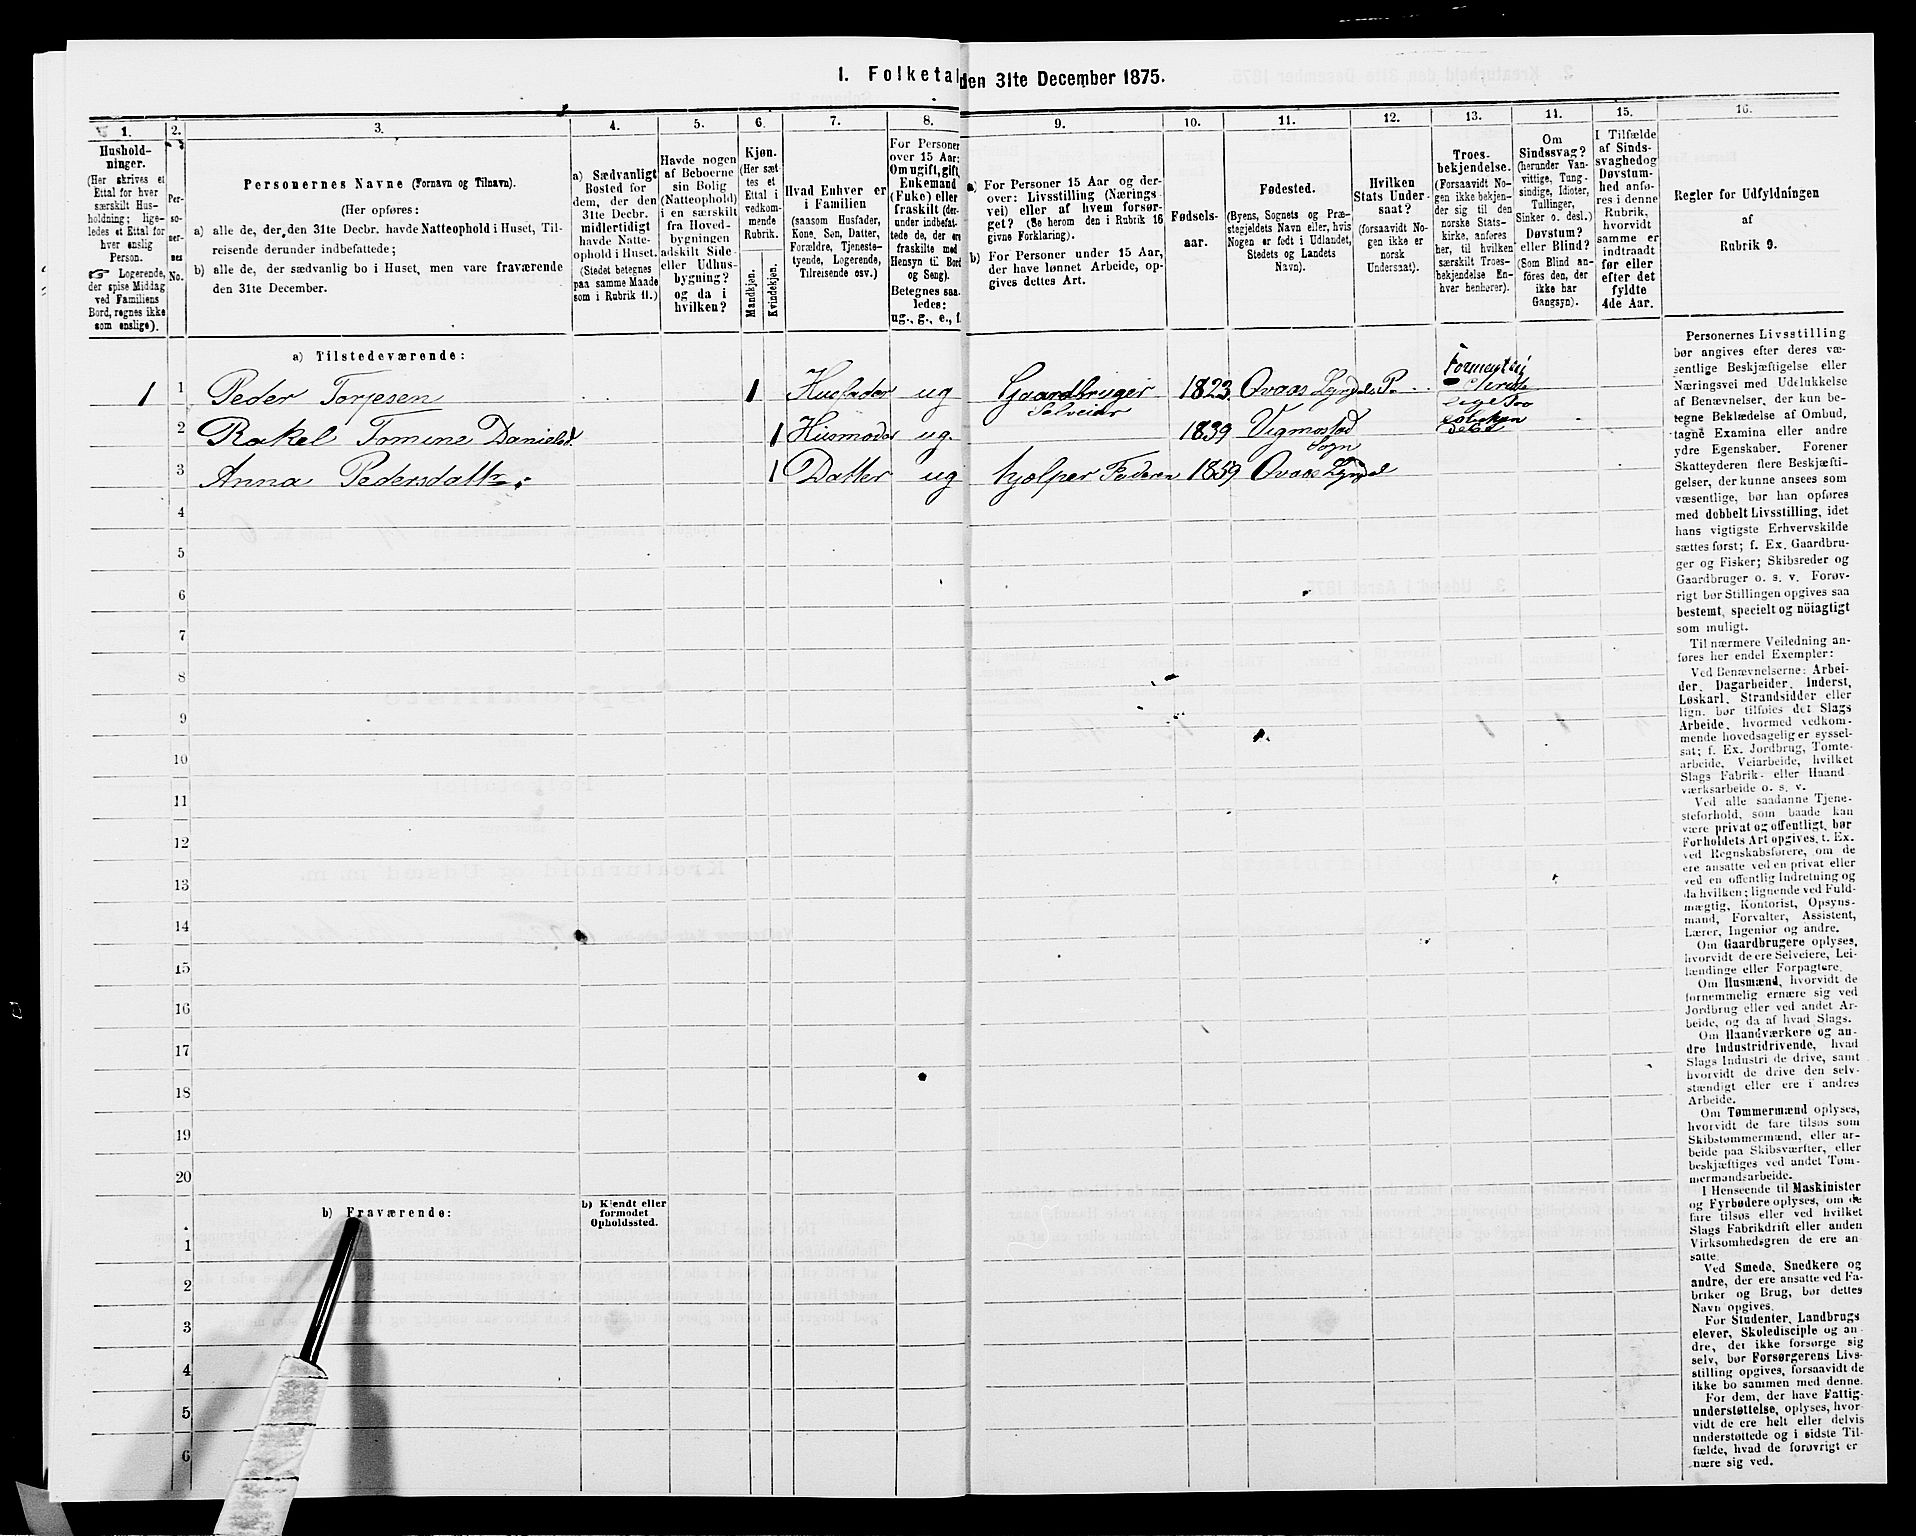 1. Folketal den 31te December 1875.
1.
Hushold-
ninger.
(Her skrives et
Ettal for hver
særskilt Hus-
holdning; lige-
ledes et Ettal for
hver enslig
Person.
☞ Logerende,
der spise Middag
ved Familiens
Bord, regnes ikke
som enslige).
2.
Per-
so-
ner-
nes
No.
3.
Personernes Navne (Fornavn og Tilnavn).
(Her opføres:
a) alle de, der den 31te Decbr. havde Natteophold i Huset, Til-
reisende derunder indbefattede;
b) alle de, der sædvanlig bo i Huset, men vare fraværende
den 31te December.
4.
a) Sædvanligt
Bosted for
dem, der den
31te Decbr.
midlertidigt
havde Natte-
ophold i Huset.
(Stedet betegnes
paa samme Maade
som i Rubrik 11.)
5.
Havde nogen
af Beboerne
sin Bolig
(Natteophold)
i en særskilt
fra Hoved-
bygningen
adskilt Side-
eller Udhus-
bygning?
og da i
hvilken?
6.
Kjøn.
(Her sæt-
tes et
Ettal i
vedkom-
mende
Rubrik.
Mandkjøn.
Kvindekjøn.
7.
Hvad Enhver er
i Familien
(saasom Husfader,
Kone, Søn, Datter,
Forældre, Tjeneste-
tyende, Logerende,
Tilreisende osv.)
8.
For Personer
over 15 Aar:
Om ugift, gift,
Enkemand
(Enke) eller
fraskilt (der-
under indbefat-
tede de, der ere
fraskilte med
Hensyn til Bord
og Seng).
Betegnes saa-
ledes:
ug., g., e., f.
9.
a) For Personer 15 Aar og der-
over: Livsstilling (Nærings-
vei) eller af hvem forsør-
get? (Se herom den i Rubrik 16
givne Forklaring).
b) For Personer under 15 Aar,
der have lønnet Arbeide, op-
gives dettes Art.
10.
Fødsels-
aar.
11.
Fødested.
(Byens, Sognets og Præ-
stegjeldets Navn eller, hvis
Nogen er født i Udlandet,
Stedets og Landets
Navn).
12.
Hvilken
Stats Under-
saat?
(forsaavidt No-
gen ikke er
norsk
Undersaat).
13.
Troes-
bekjendelse.
(Forsaavidt No-
gen ikke bekjen-
der sig til den
norske Stats-
kirke, anføres
her, til hvilken
særskilt Troes-
bekjendelse En-
hver henhører).
14.
Om
Sindssvag?
(herunder Van-
vittige, Tung-
sindige, Idioter,
Tullinger,
Sinker o. desl.)
Døvstum?
eller Blind?
(Som Blind an-
føres den, der
ikke har
Gangsyn).
15.
I Tilfælde
af Sinds-
svaghed og
Døvstum-
hed anfø-
res i denne
Rubrik,
hvorvidt
samme er
indtraadt
før eller
efter det
fyldte
4de Aar.
16.
Regler for Udfyldningen
af
Rubrik 9.
a) Tilstedeværende:
1 1 Peder Torjesen 1 Husfader ug Gaardbruger Selveier 1823 Øvaas Lyngdals P.
2 Rakel Tomine Danielsd. 1 Husmoder ug. 1839 Vigmostad Sogn
3 Anna Pedersdatter 1 Datter ug hjælper Faderen 1859 Øvaas Lyngdal
4
5
6
7
8
9
10
11
12
13
14
15
16
17
18
19
20
b) Fraværende:
b) Kjendt eller
formodet
Opholdssted.
1
2
3
4
5
6
Personernes Livsstilling
bør angives efter deres væ-
sentlige Beskjæftigelse eller
Næringsvei med Udelukkelse
af Benævnelser, der kun be-
tegne Beklædelse af Ombud,
tagne Examina eller andre
ydre Egenskaber. Forener
Skatteyderen flere Beskjæfti-
gelser, der kunne ansees som
væsentlige, bør han opføres
med dobbelt Livsstilling, idet
hans vigtigste Erhvervskilde
sættes først; f. Ex. Gaardbru-
ger og Fisker; Skibsreder og
Gaardbruger o. s. v. Forøv-
rigt bør Stillingen opgives saa
bestemt, specielt og nöiagtigt
som muligt.
Til nærmere Veiledning an-
føres her endel Exempler:
Ved Benævnelserne: Arbei-
der, Dagarbeider, Inderst,
Løskarl, Strandsidder eller
lign. bør tilføies det Slags
Arbeide, hvormed vedkom-
mende hovedsagelig er syssel-
sat; f. Ex. Jordbrug, Tomte-
arbeide, Veiarbeide, hvilket
Slags Fabrik- eller Haand-
værksarbeide o. s. v.
Ved alle saadanne Tjene-
steforhold, som baade kan
være privat og offentligt, bør
Forholdets Art opgives, t. Ex.
ved Regnskabsførere, om de
ere ansatte ved en privat eller
ved en offentlig Indretning og
da hvilken; lignende ved Fuld-
mægtig, Kontorist, Opsyns-
mand, Forvalter, Assistent,
Lærer, Ingeniør og andre.
Om Gaardbrugere oplyses,
hvorvidt de ere Selveiere, Lei-
lændinge eller Forpagtere.
Om Husmænd, hvorvidt de
fornemmelig ernære sig ved
Jordbrug eller ved andet Ar-
beide, og da af hvad Slags.
Om Haandværkere og an-
dre Industridrivende, hvad
Slags Industri de drive, samt
hvorvidt de drive den selv-
stændigt eller ere i andres
Arbeide.
Om Tømmermænd oplyses,
hvorvidt de fare tilsøs som
Skibstømmermænd, eller ar-
beide paa Skibsværfter, eller
beskjæftiges ved andet Tøm-
mermandsarbeide.
I Henseende til Maskinister
og Fyrbødere oplyses, om de
fare tilsøs eller ved hvilket
Slags Fabrikdrift eller anden
Virksomhedsgren de ere an-
satte.
Ved Smede, Snedkere og
andre, der ere ansatte ved Fa-
briker og Brug, bør dettes
Navn opgives.
For Studenter, Landbrugs-
elever, Skoledisciple og an-
dre, der ikke forsørge sig
selv, bør Forsørgerens Livs-
stilling opgives, forsaavidt de
ikke bo sammen med denne.
For dem, der have Fattig-
understøttelse, oplyses, hvor-
vidt de ere helt eller delvis
understøttede og i sidste Til-
fælde, hvad de forøvrigt er-
nære sig ved.